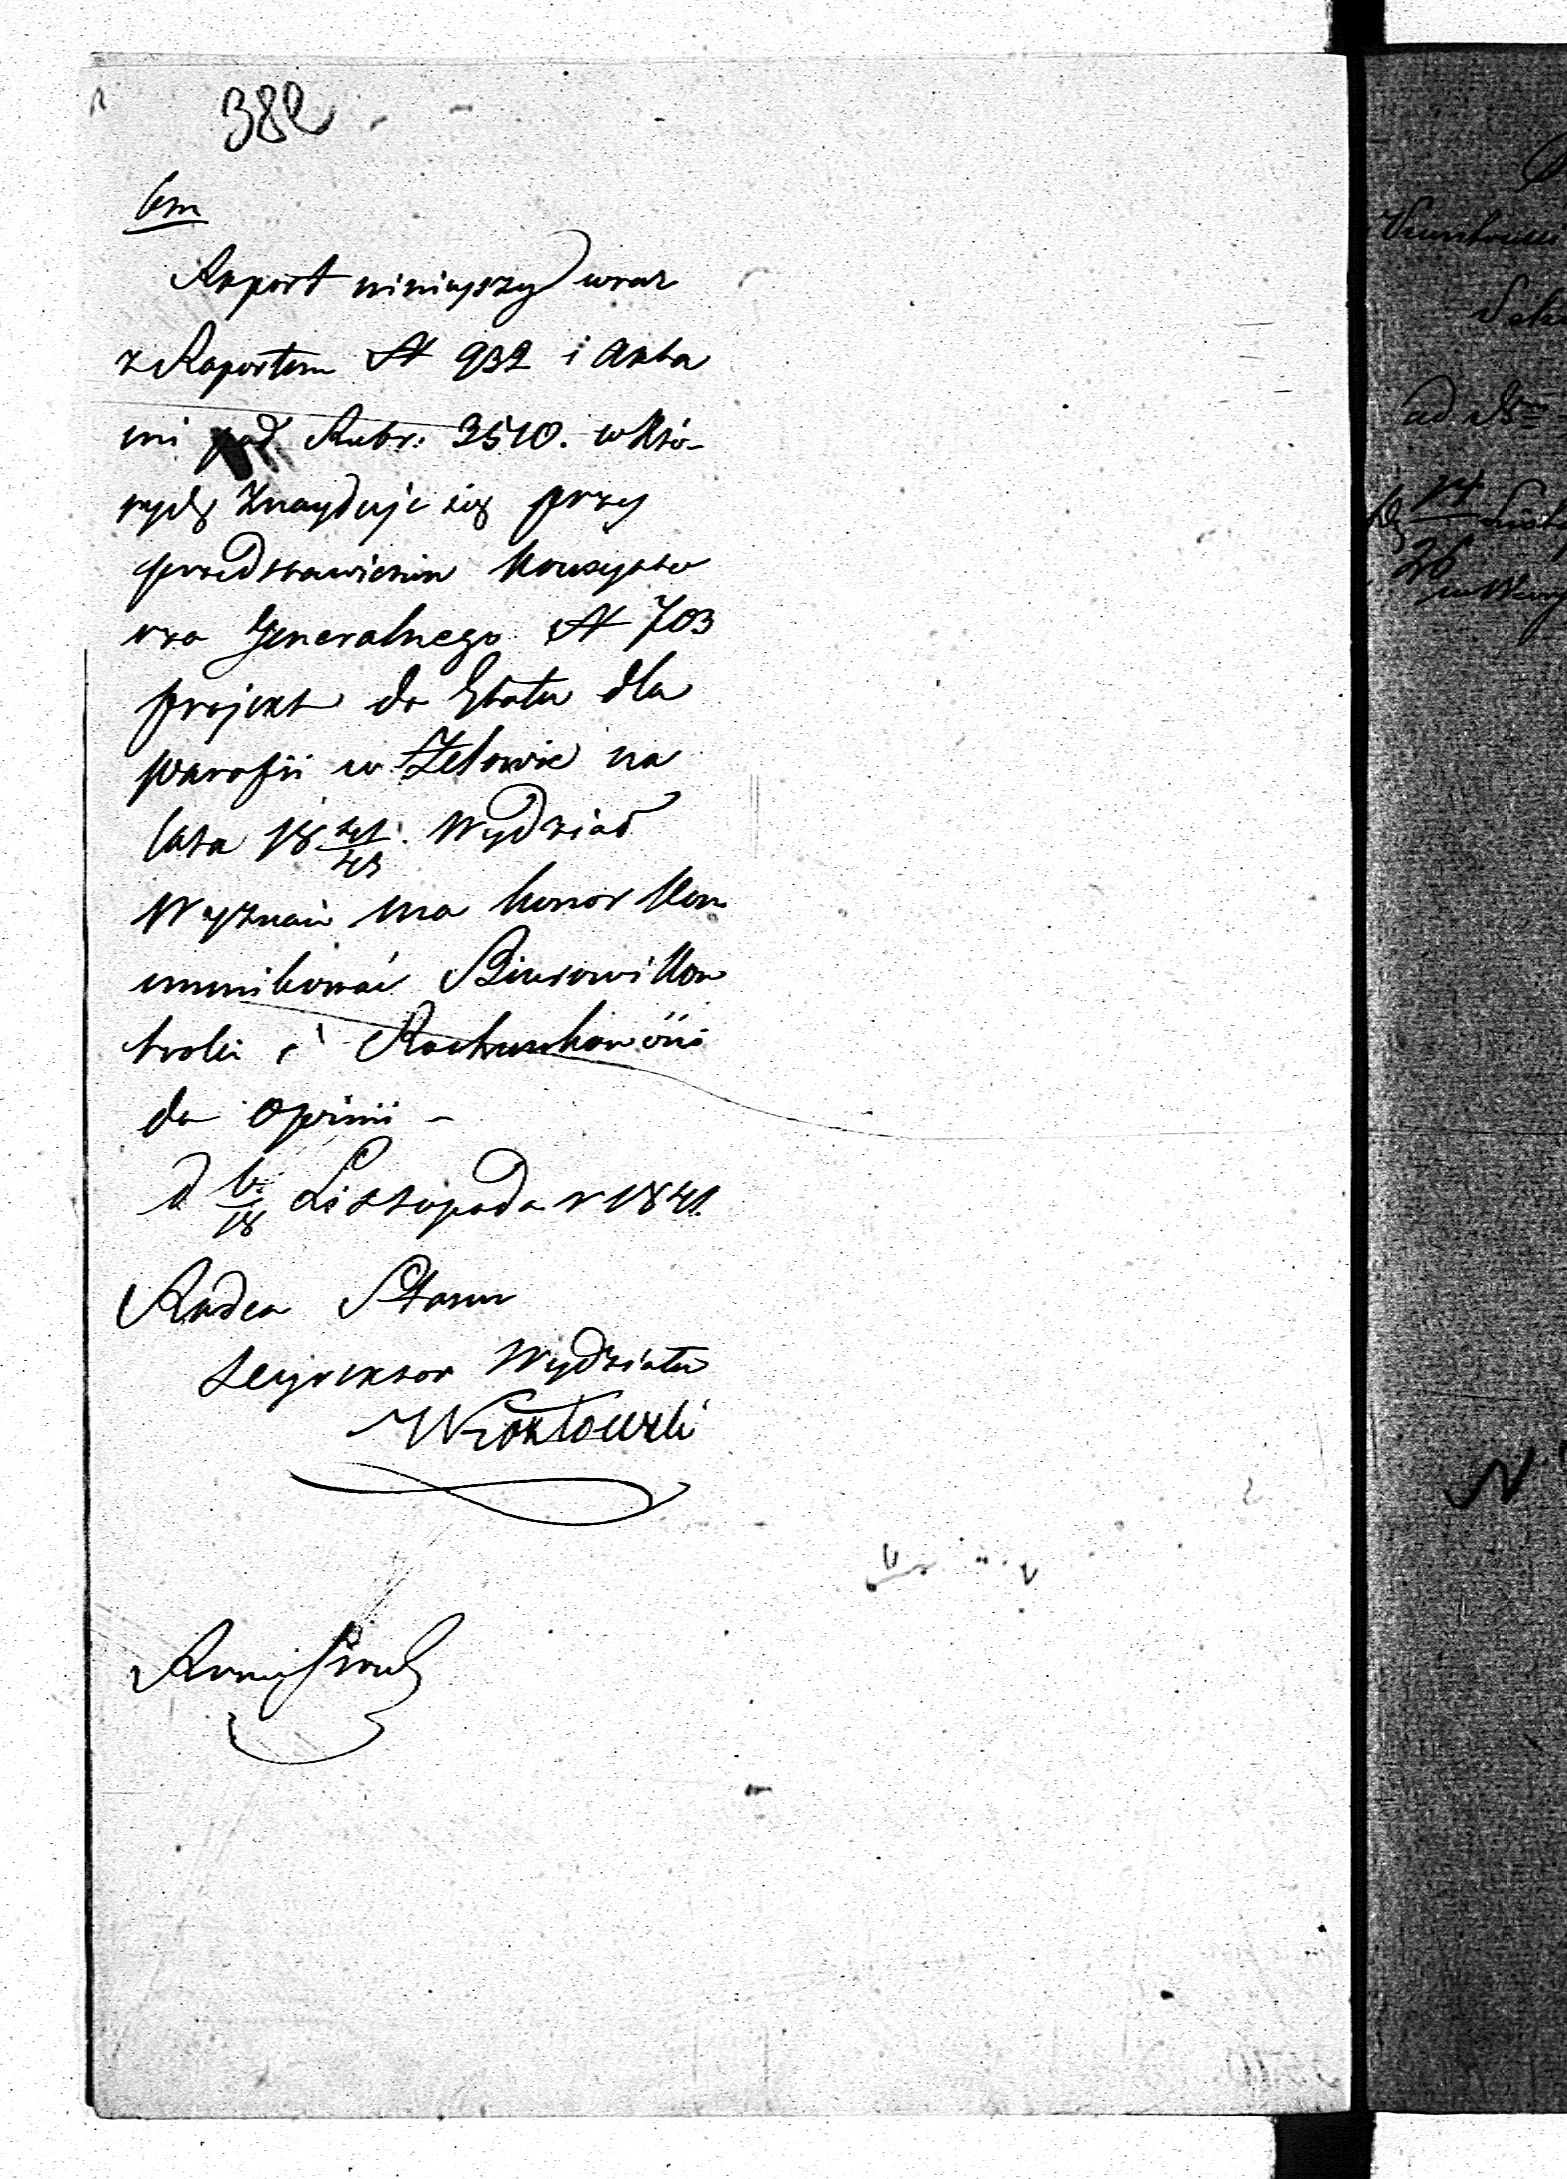 382
bm
Raport niniejszy wraz
z Raportem N 932 i Akta
mi pod Rubr: 3510. w któ-
rych znayduje się przy
przedstawieniu Konsysto
rza Generalnego N 703
projekt do Etatu dla
parafii w Zelowie na
lata 18 41/43. Wydział
Wyznań ma honor kom
munikować Biurowi Kon
troli i Rachunkowości
do opinii –
d 6/18 Listopada r 1841.
Radca Stanu
Dyrektor Wydziału
ad N
14
26
N